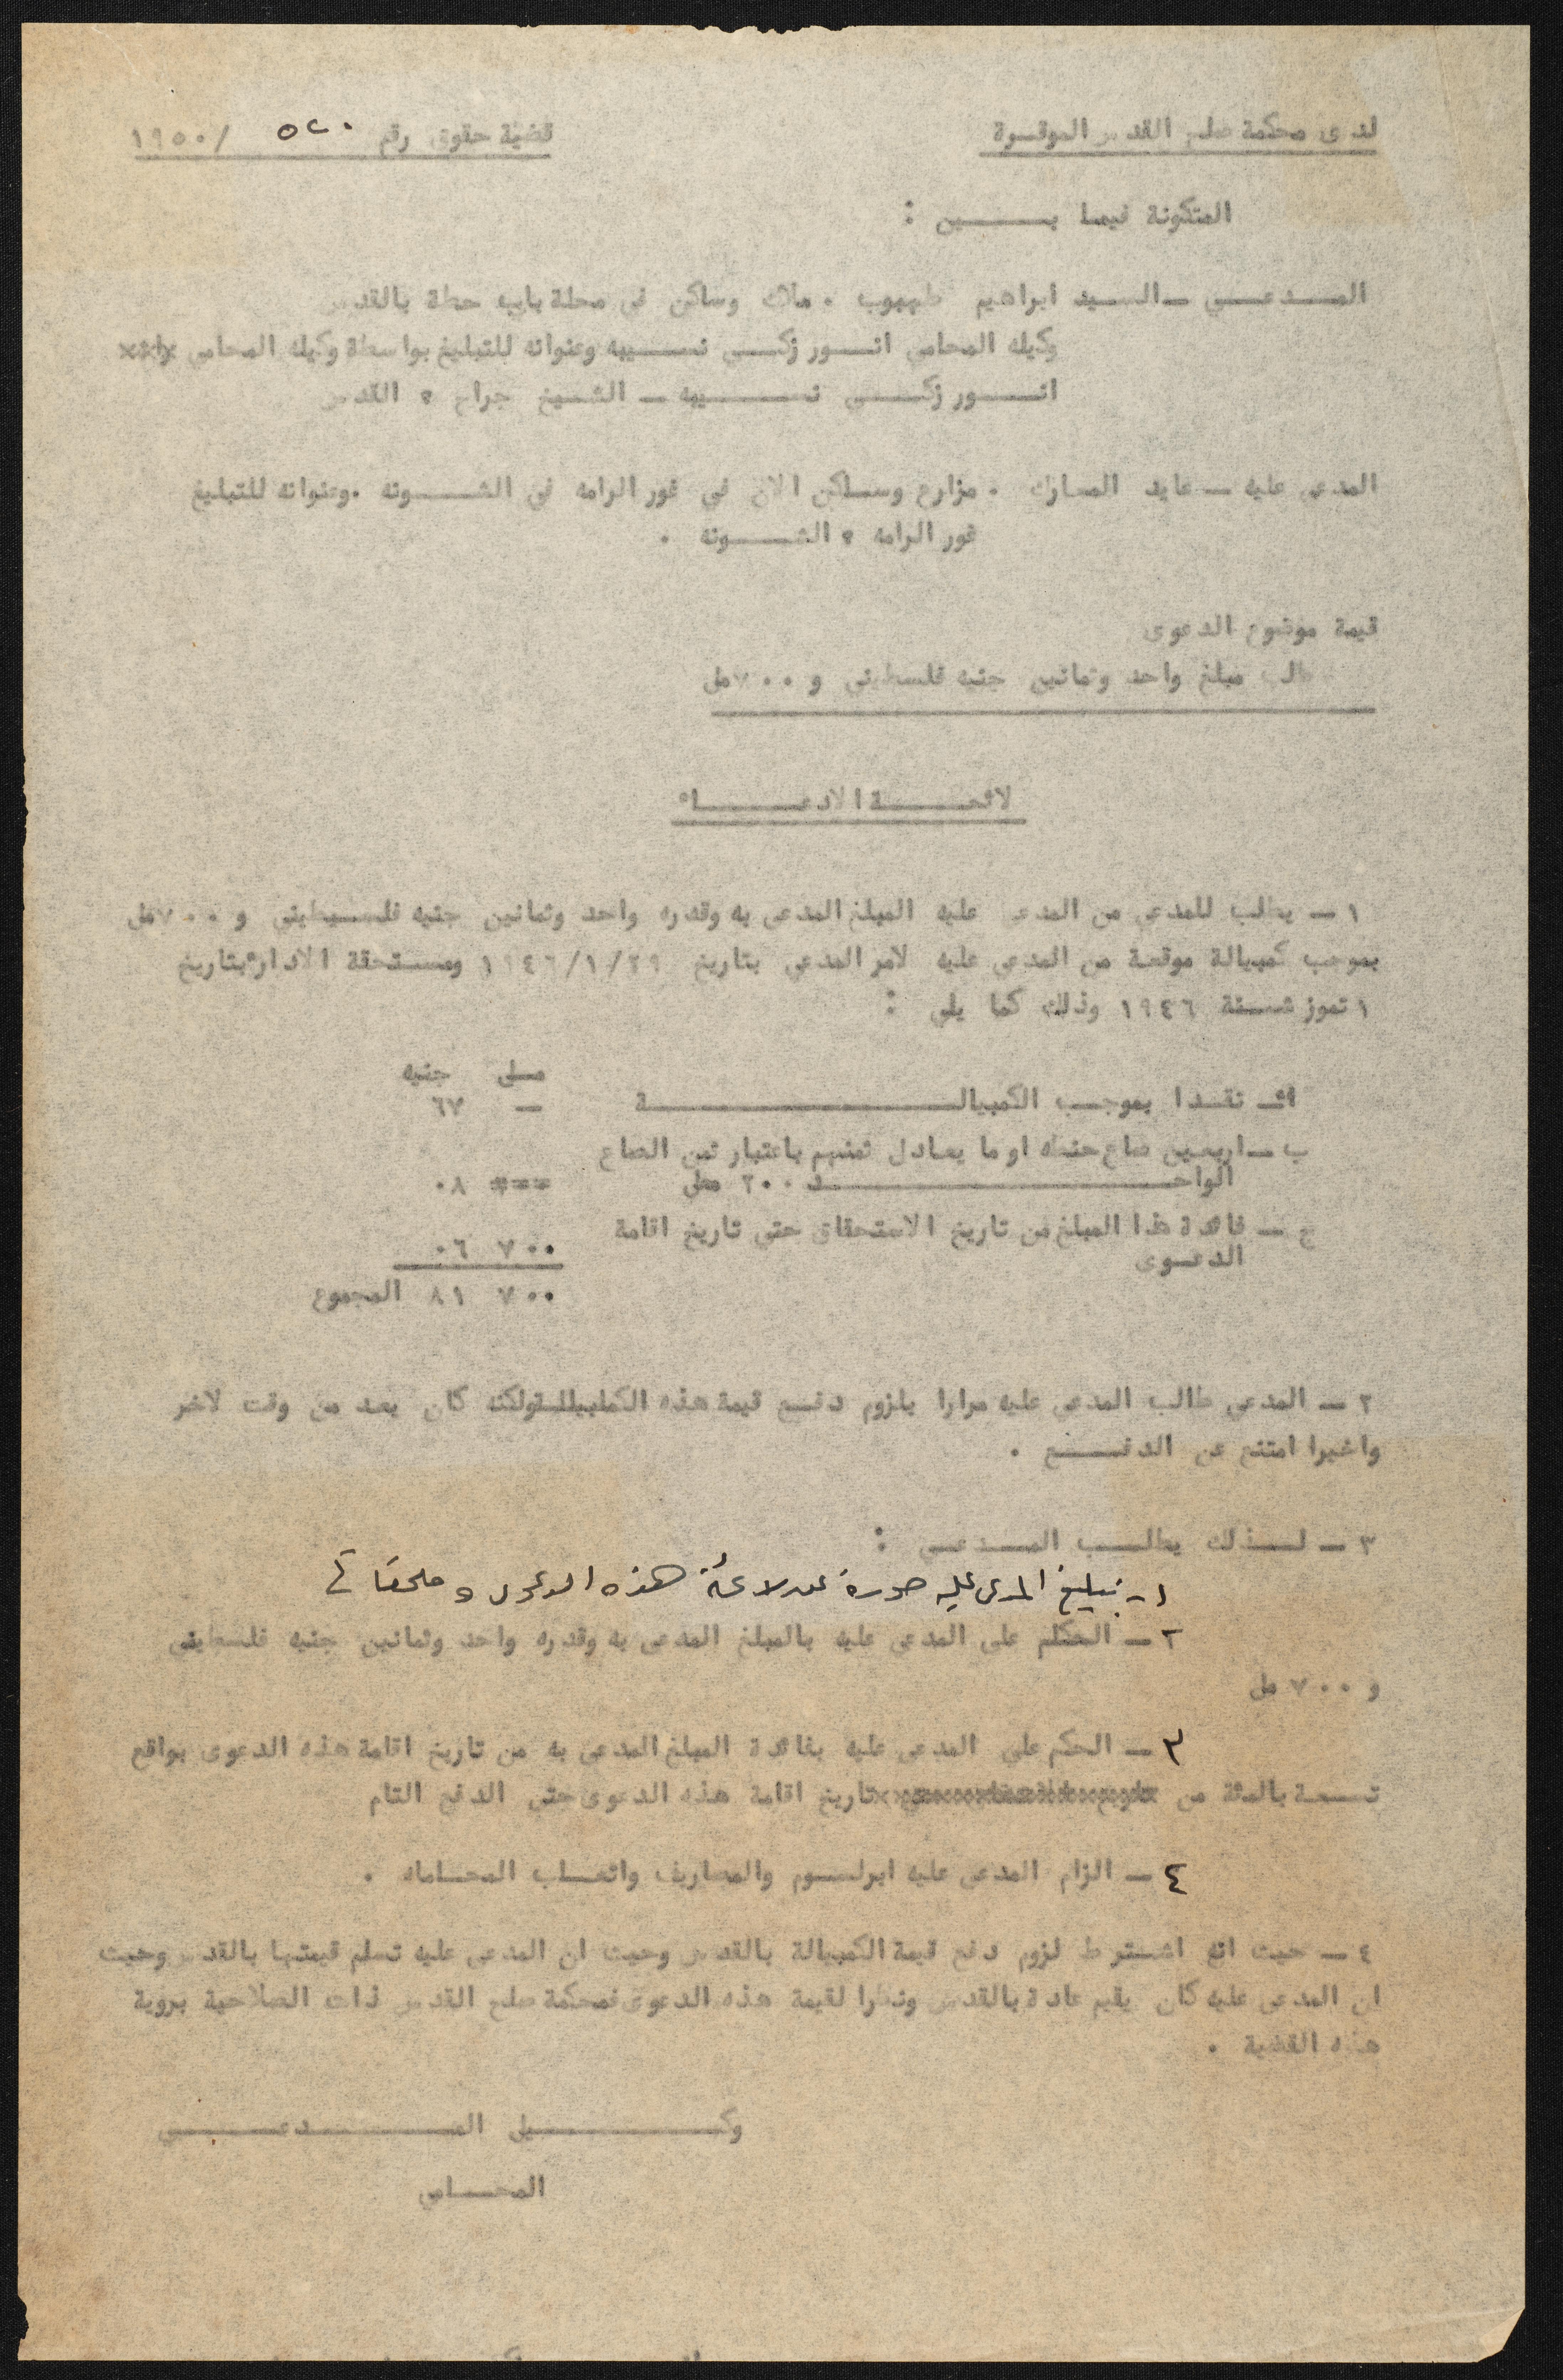 لدى محكمة صلح القدس الموقرة
قضية حقوق رقم ٥٢٠ / ١٩٥٠
المتكونة فيما بين :
المدعي ــ السيد ابراهيم طهبوب . ملاك وساكن في محلة باب حطة بالقدس
وكيله المحامي انور زكي نسيبه وعنوانه للتبليغ بواسطة وكيله المحامي
انور زكي نسيبه ــ الشيخ جراح ، القدس
المدعى عليه ــ عايد المبارك . مزارع وساكن الان في غور الرامه في الشونه .وعنوانه للتبليغ
غور الرامه ، الشونه .
قيمة موضوع الدعوى
طلب مبلغ واحد وثمانين جنيه فلسطيني و ٧٠٠ مل
لائحة الادعاء
١ ــ يطلب للمدعي من المدعى عليه المبلغ المدعى به وقدره واحد وثمانين جنيه فلسطيني و ٧٠٠ مل
بموجب كمبيالة موقعة من المدعى عليه لامر المدعي بتاريخ ٢٩/١/١٩٤٦ ومستحقة الاداء بتاريخ
١ تموز سنة ١٩٤٦ وذلك كما يلي :
مل جنيه
ا ــ نقدا بموجب الكمبيالة ــ ٦٧
ب ــ اربعين صاع حنطه او ما يعادل ثمنهم باعتبار ثمن الصاع
الواحد ٢٠٠ مل === ٠٨
ج ــ فائدة هذا المبلغ من تاريخ الاستحقاق حتى تاريخ اقامة
الدعوى ٧٠٠ ٠٦
٧٠٠ ٨١ المجموع
٢ ــ المدعي طالب المدعى عليه مرارا بلزوم دفع قيمة هذه الكمبيالة ولكنه كان يعد من وقت لاخر
واخيرا امتنع عن الدفع .
٣ ــ لذلك يطلب المدعي :
١ - تبليغ المدعى عليه صورة عن لائحة هذه الدعوى وملحقاتها
٢ ــ الحكم على المدعى عليه بالمبلغ المدعى به وقدره واحد وثمانين جنيه فلسطيني
و ٧٠٠ مل
٣ ــ الحكم على المدعى عليه بفائدة المبلغ المدعى به من تاريخ اقامة هذه الدعوى بواقع
تسعة بالمئة من تاريخ اقامة هذه الدعوى حتى الدفع التام
٤ ــ الزام المدعى عليه ابرلسوم والمصاريف واتعاب المحاماه .
٤ ــ حيث انه اشترط لزوم دفع قيمة الكمبيالة بالقدس وحيث ان المدعى عليه تسلم قيمتها بالقدس وحيث
ان المدعى عليه كان يقيم عادة بالقدس ونظرا لقيمة هذه الدعوى فمحكمة صلح القدس ذات الصلاحية بروية
هذه القضية .
وكيل المدعي
المحامي